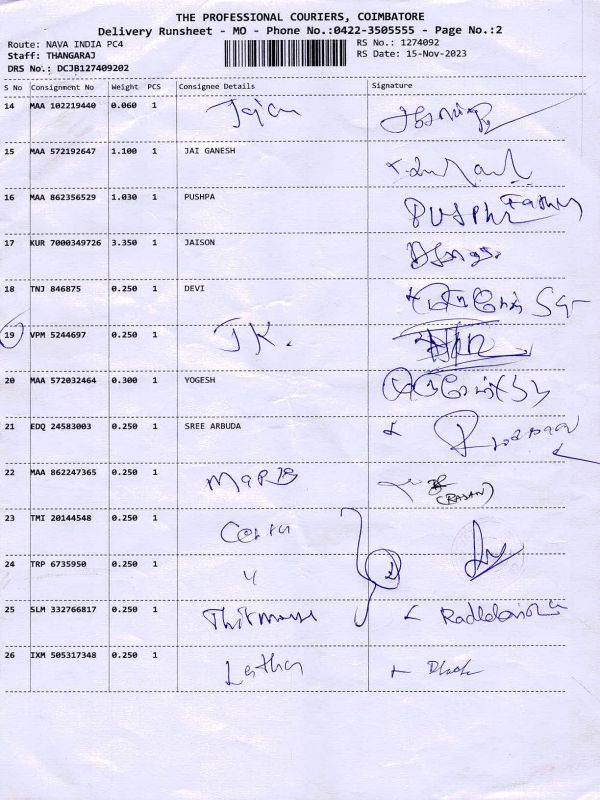 THE PROFESSIONAL COURIERS, COIMBATORE
Delivery Runsheet - MO - Phone No.:0422-3505555 - Page No.:2
Route: NAVA INDIA PC4
RS No.: 1274092
Staff: THANGARAJ
RS Date: 15-Nov-2023
DRS No.: DCJB127409202
S No Consignment No Weight PCS Consignee Details Signature
14 MAA 102219440 0.060 1
15 MAA 572192647 1.100 1 JAI GANESH
16 MAA 862356529 1.030 1 PUSHPA
17 KUR 7000349726 3.350 1 JAISON
18 TNJ 846875 0.250 1 DEVI
19 VPM 5244697 0.250 1 J.K.
20 MAA 572032464 0.300 1 YOGESH
21 EDQ 24583003 0.250 1 SREE ARBUDA
22 MAA 862247365 0.250 1
(RAJAN)
23 TMI 20144548 0.250 1
24 TRP 6735950 0.250 1
25 SLM 332766817 0.250 1
26 IXM 505317348 0.250 1